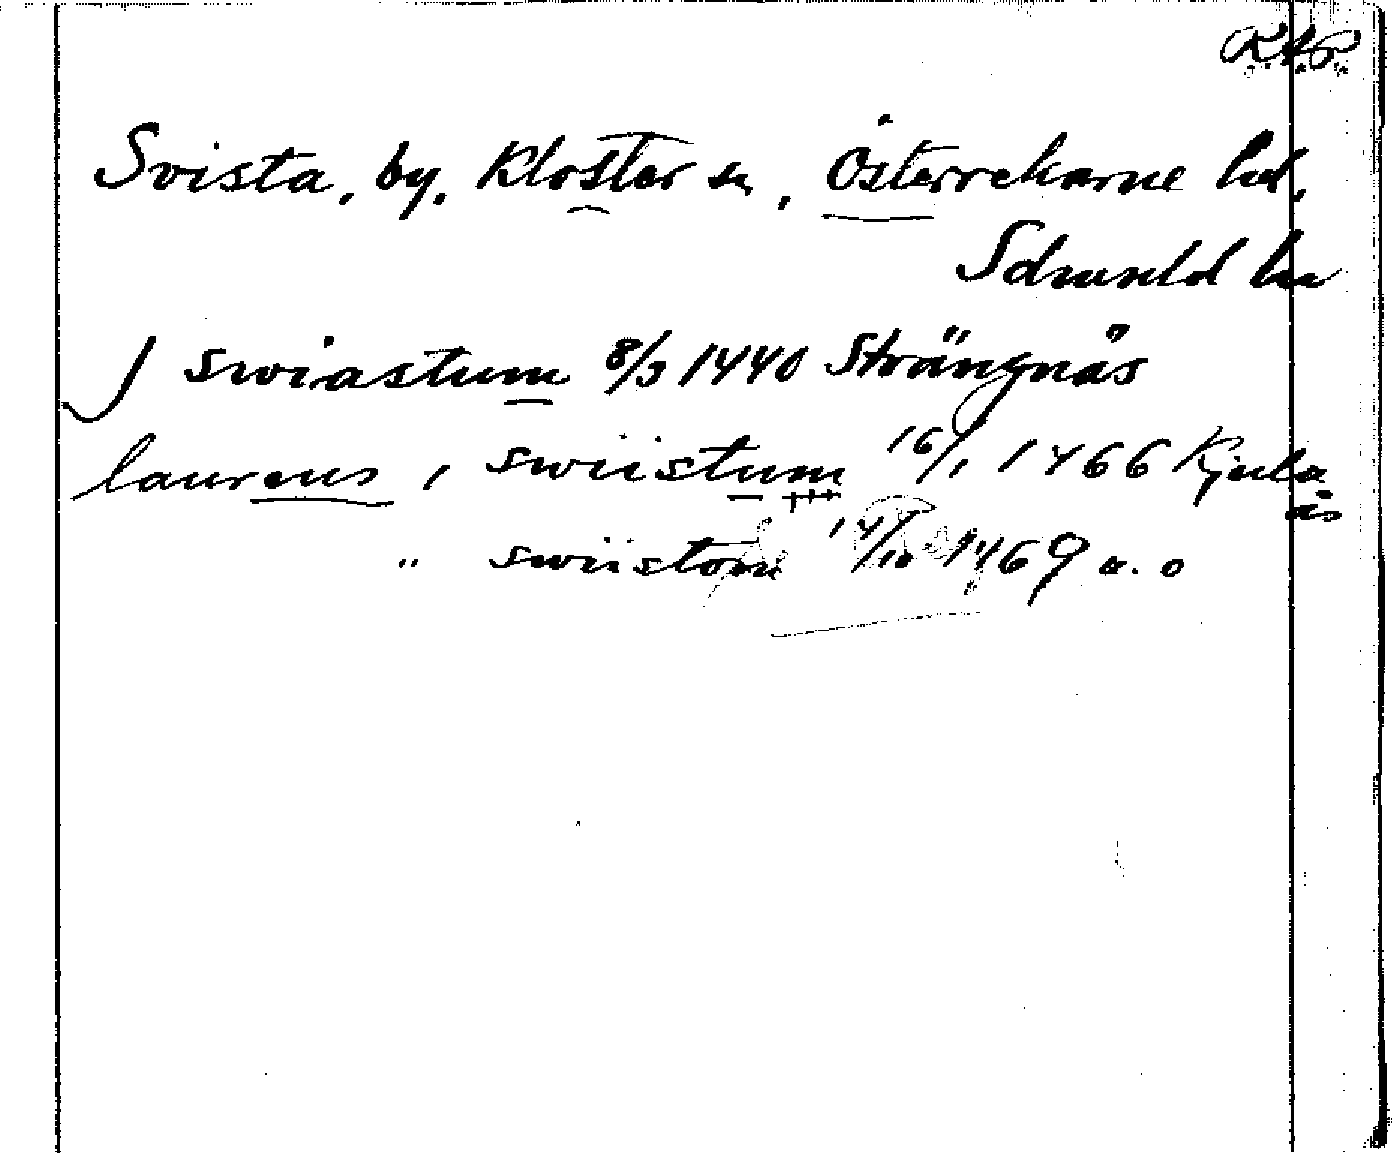 R.A.P.
Svista, by, Kloster sn, Österrekarne hd,
Sdmnld ln
J swiastum 8/3 1440 Strängnäs
laurens i swiistum 16/1 1466 Kjula
ås
" swiistom 14/10 1469 a. o